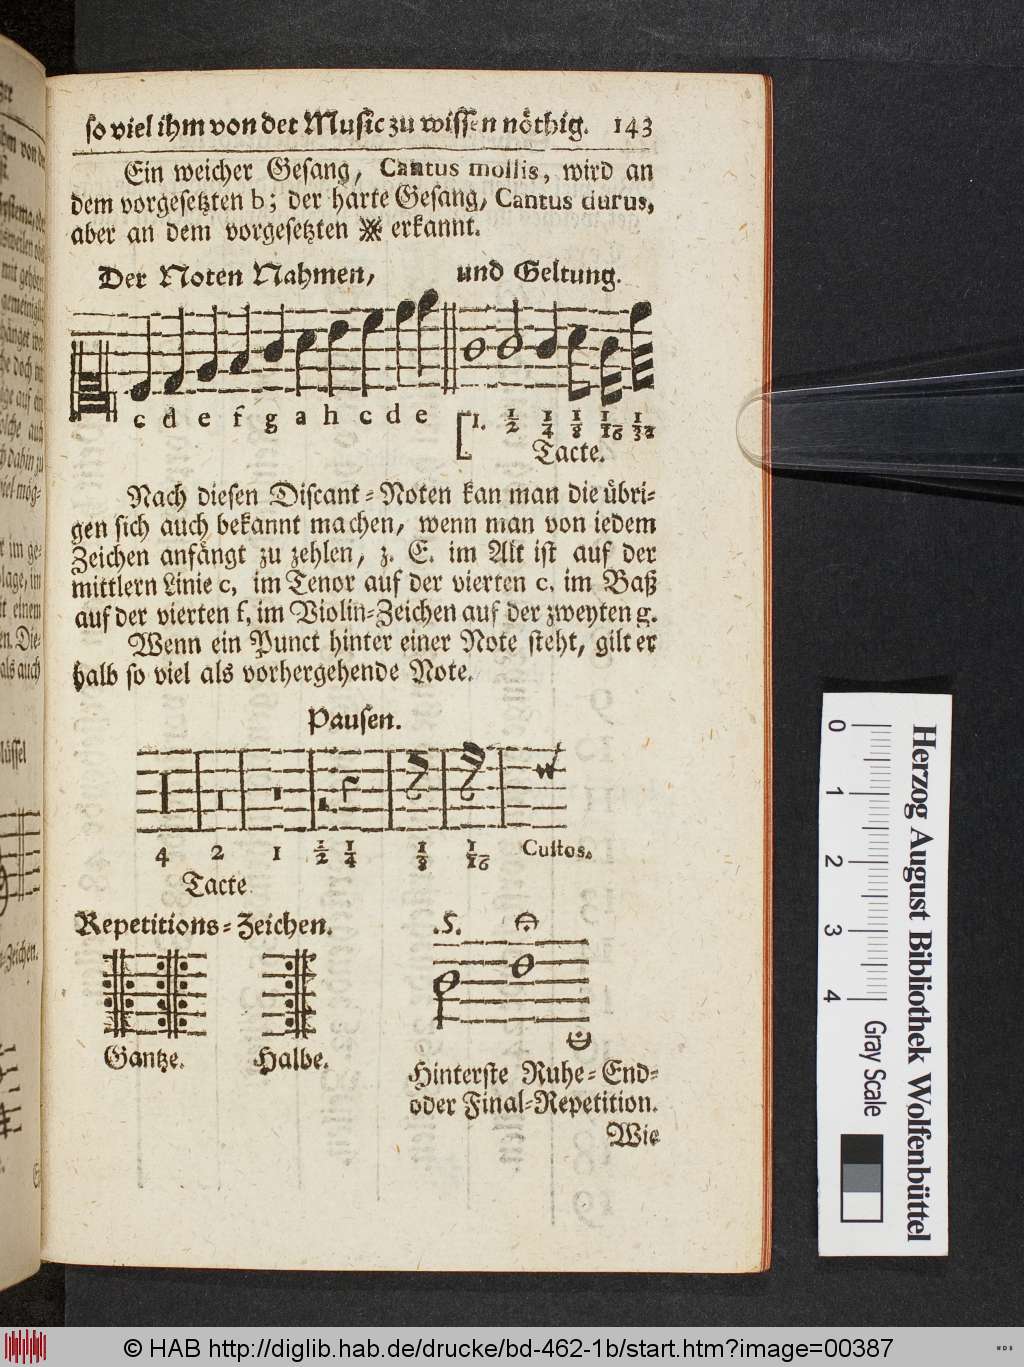 so viel ihm von der Music zu wissen nöthig. 143
Ein weicher Gesang, Cantus mollis, wird an
dem vorgesetzten b; der harte Gesang, Cantus durus,
aber an dem vorgesetzten erkannt.
Der Noten Nahmen, und Geltung.
c d e f g a h c d e 1. 1/2 1/4 1/8 1/16 1/32
Tacte.
Nach diesen Discant-Noten kan man die übri-
gen sich auch bekannt machen, wenn man von iedem
Zeichen anfängt zu zehlen, z. E. im Alt ist auf der
mittlern Linie c, im Tenor auf der vierten c. im Baß
auf der vierten f, im Violin-Zeichen auf der zweyten g.
Wenn ein Punct hinter einer Note steht, gilt er
halb so viel als vorhergehende Note.
Pausen.
4 2 1 1/2 1/4 1/8 1/16 Custos.
Tacte
Repetitions-Zeichen.
.S.
Gantze. Halbe.
Hinterste Ruhe-End-
oder Final-Repetition.
Wie
Herzog August Bibliothek Wolfenbüttel
0 1 2 3 4 Gray Scale
© HAB http://diglib.hab.de/drucke/bd-462-1b/start.htm?image=00387